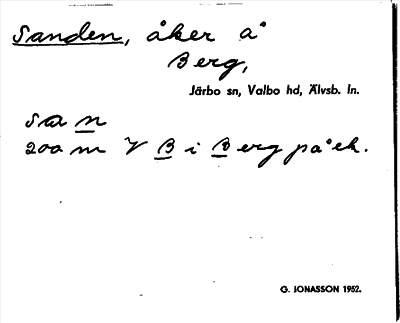 Sanden, åker å
Berg,
Järbo sn, Valbo hd, Älvsb. ln.
san
200 m V B i Berg på ek.
G. JONASSON 1952.